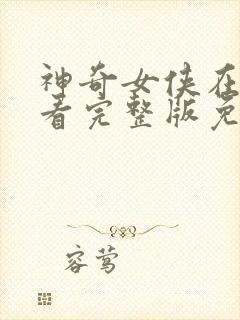 神奇女侠在
看完整版免
容莺